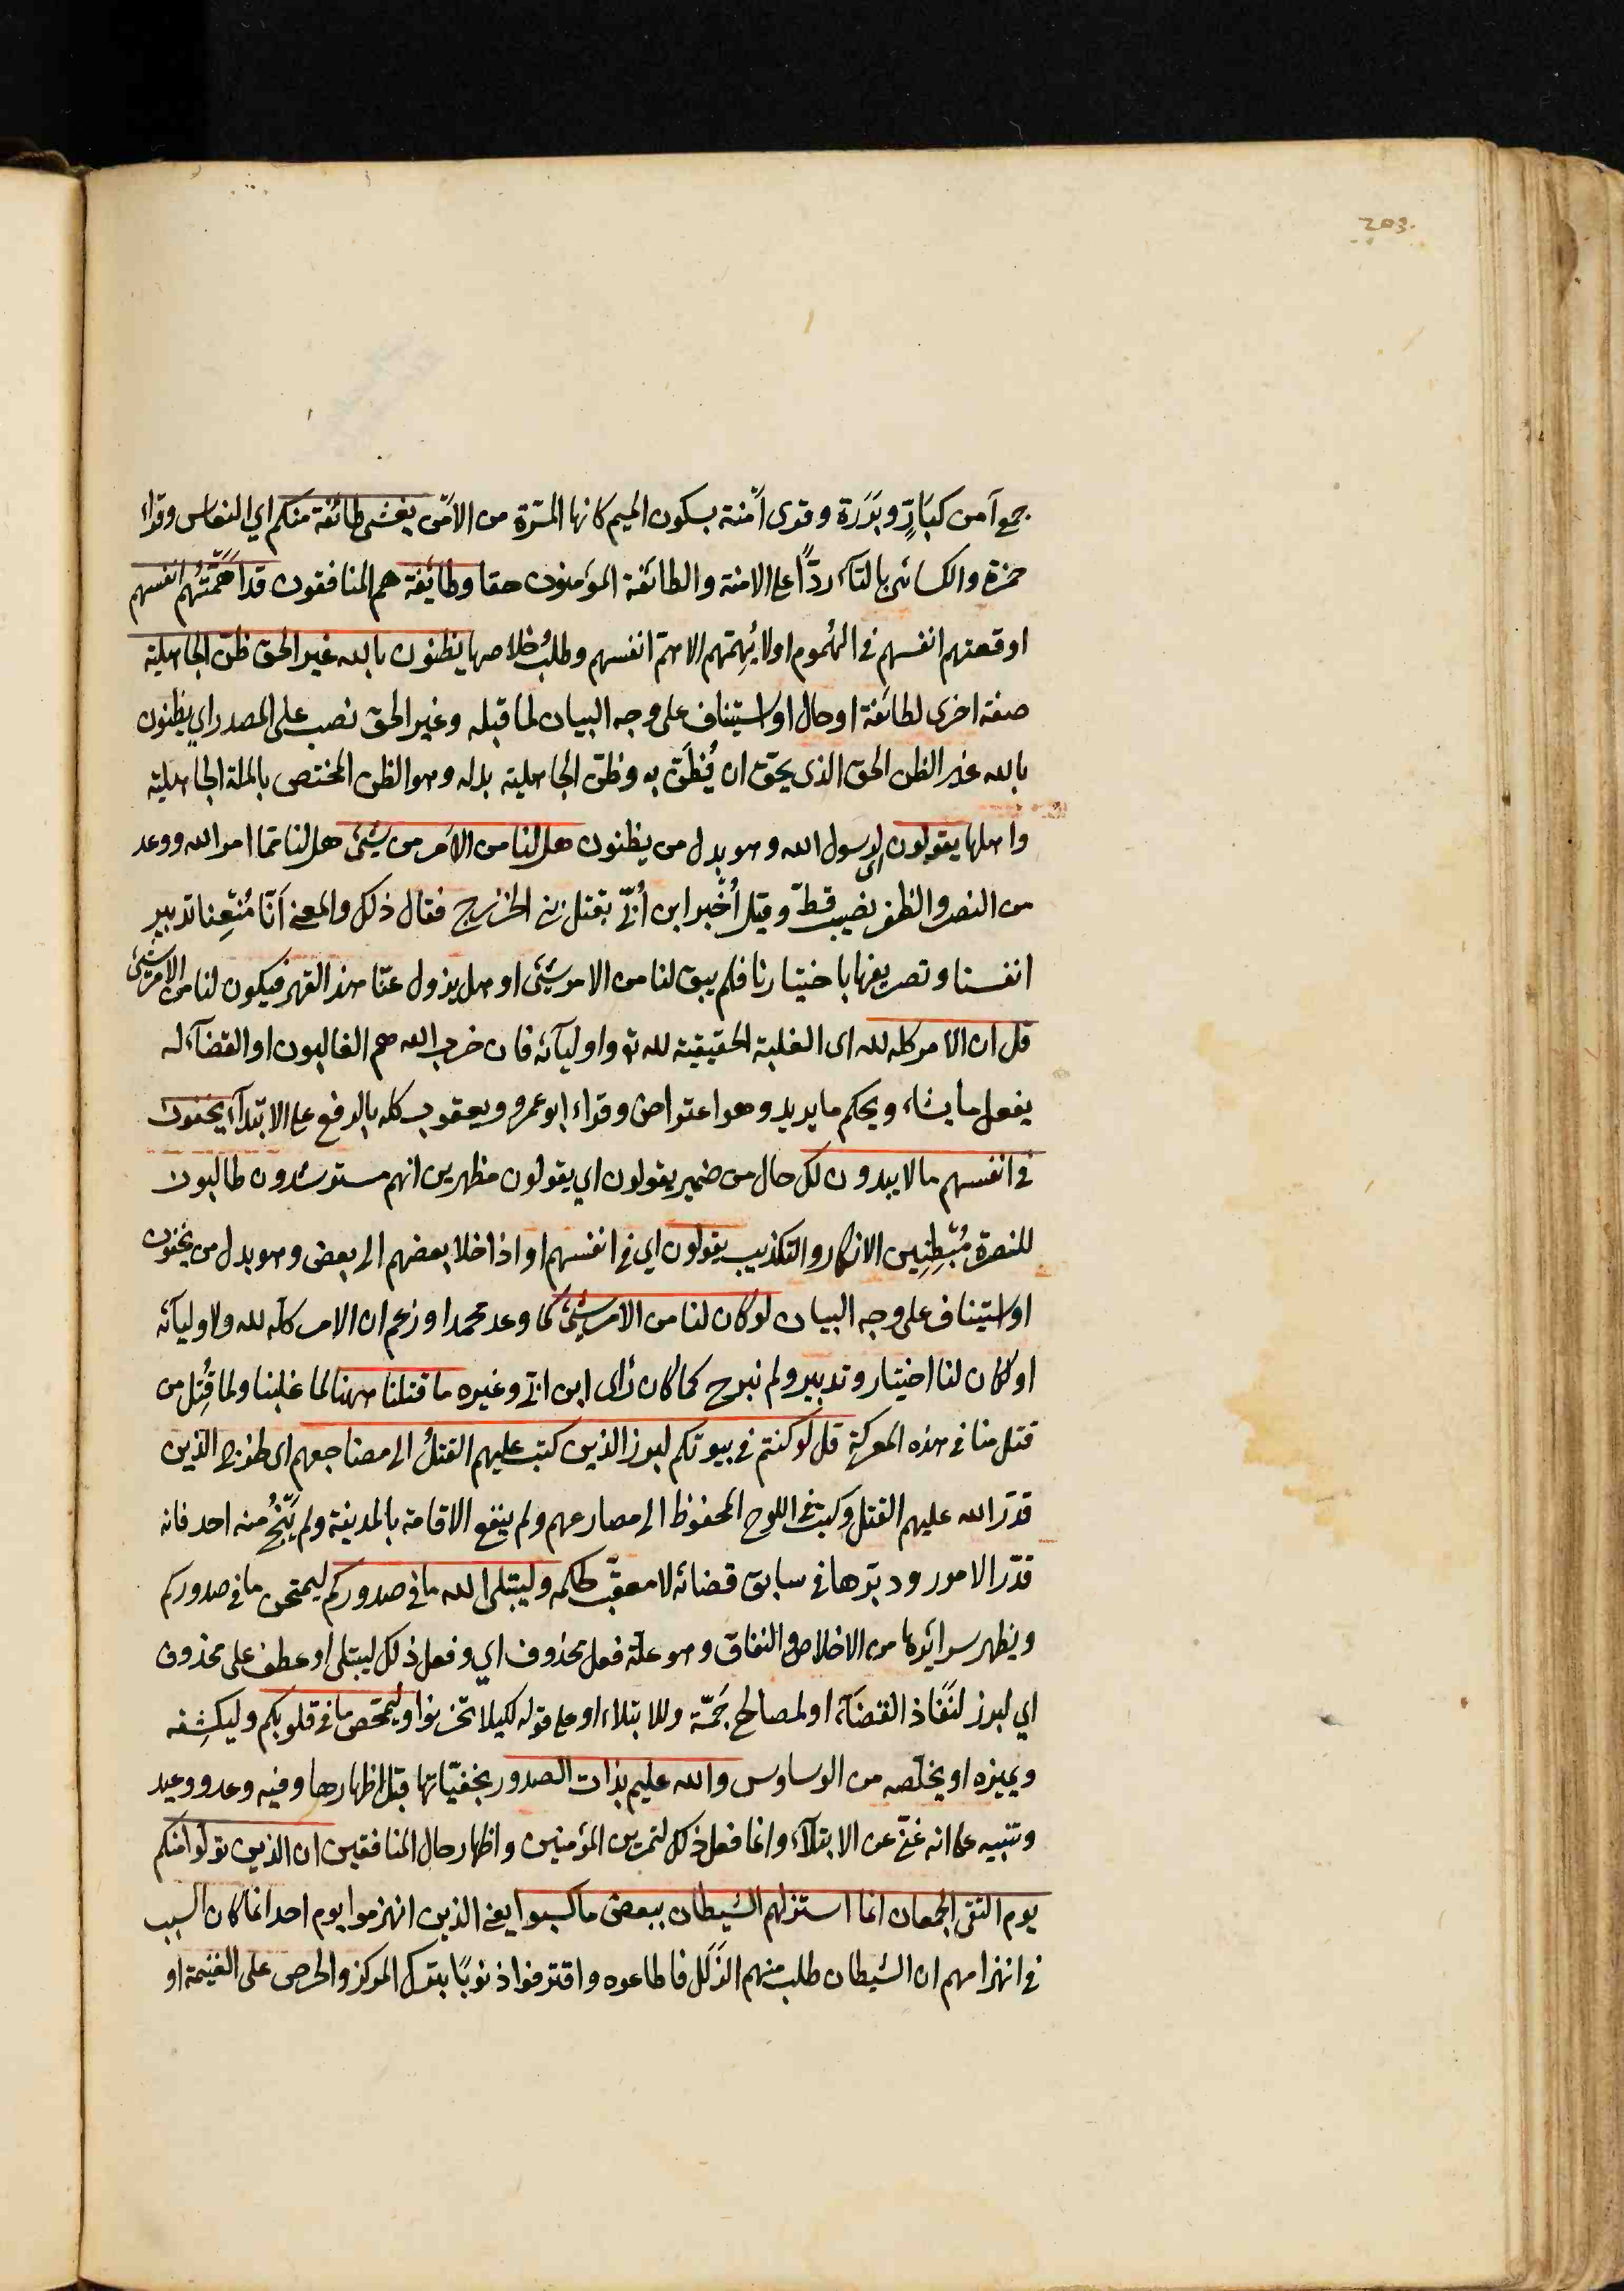 203
جمع آمن كبَارٍّ وبَرَرَة وقرى أمْنة بسكون الميم كانها المرّة من الامن يغشى طائفة منكم اي النعاس وقراء
حمزة والكسائى بالتآء ردًّا على الامنة والطائفة المؤمنون حقا وطائفة هم المنافقون قد اَهَمَّتهُم انفسهم
اوقعتهم انفسهم في الهُموم او لا يُهِمّهم الا همّ انفسهم وطلبُ خلاصها يظنون بالله غير الحق ظن الجاهلية
صفة اخرى لطائفة او حال او استيناف على وجه البيان لما قبله وغير الحق نصب على المصدر اي يظنون
بالله غير الظن الحق الذى يحق ان يُظَنّ به وظن الجاهلية بدله وهو الظن المختص بالملة الجاهلية
واهلها يقولون اى لرسول الله وهو بدل من يظنون هل لنا من الامر من شيئ هل لنا مما امر الله ووعد
من النصر والظفر نصيب قطّ وقيل اُخْبر ابن اُبَيّ بقتل بني الخزرج فقال ذلك والمعنى اَنّا مُنِعنا تدبير
انفسنا وتصريفها باختيارنا فلم يبق لنا من الامر شيئ او هل يزول عنّا هذا القهر فيكون لنا من الامر شيئ
قل ان الامر كله لله اى الغلبة الحقيقية لله تع واوليآئه فان حزب الله هم الغالبون او القضآء له
يفعل ما يشاء ويحكم ما يريد وهو اعتراض وقراء ابو عمرو ويعقوب كله بالرفع على الابتدآء يخفون
في انفسهم مالا يبدون لك حال من ضمير يقولون اي يقولون مظهرين انهم مسترشدون طالبون
للنصرة مُبْطِنِين الانكار والتكذيب يقولون اي في انفسهم او اذا خلا بعضهم الى بعض وهو بدل من يخفون
او استيناف على وجه البيان لو كان لنا من الامر شيئ كما وعد محمد او زعم ان الامر كلّه لله ولاوليآئه
او لو كان لنا اختيار وتدبير ولم نبرح كما كان رأى ابن ابيّ وغيره ما قتلنا ههنا لما غلبنا ولما قُتِل من
قتل منا في هذه المعركة قل لو كنتم في بيوتكم لبرز الذين كتب عليهم القتلُ الى مضاجعهم اى لخرج الذين
قدّر الله عليهم القتل وكتب في اللوح المحفوظ الى مصارعهم ولم ينفع الاقامة بالمدينة ولم يَنْجُ منه احد فانه
قدّر الامور ودبّرها في سابق قضائه لا معقّب لحكمه وليبتلى الله ما في صدوركم ليمتحن ما في صدوركم
ويظهر سرائرها من الاخلاص والنفاق وهو علة فعل محذوف اي وفعل ذلك ليبتلى او عطف على محذوف
اي لبرز لنَفاذ القضآء او لمصالح جَمّة وللابتلاء او على قوله لكيلا تحزنوا وليمحّص ما في قلوبكم وليكشِفه
ويميزه او يخلّصه من الوساوس والله عليم بذات الصدور بخفيّاتها قبل اظهارها وفيه وعد ووعيد
وتنبيه على انه غنيّ عن الابتلآء وانما فعل ذلك لتمرين المؤمنين واظهار حال المنافقين ان الذين تولوا منكم
يوم التقى الجمعان انما استزلهم الشيطان ببعض ما كسبوا يعنى الذين انهزموا يوم احد انما كان السبب
في انهزامهم ان الشيطان طلب منهم الزَلَل فاطاعوه واقترفوا ذنوبًا بترك المركز والحرص على الغنيمة او